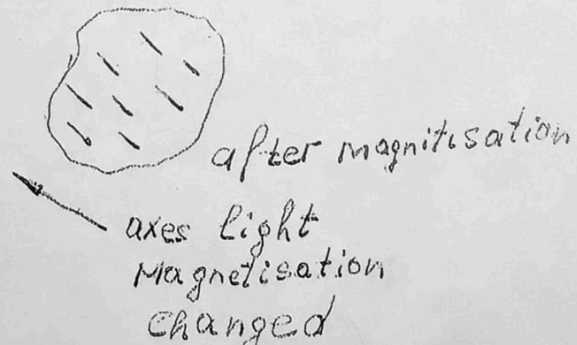 after magnitisation
axes light
Magnetisation
Changed